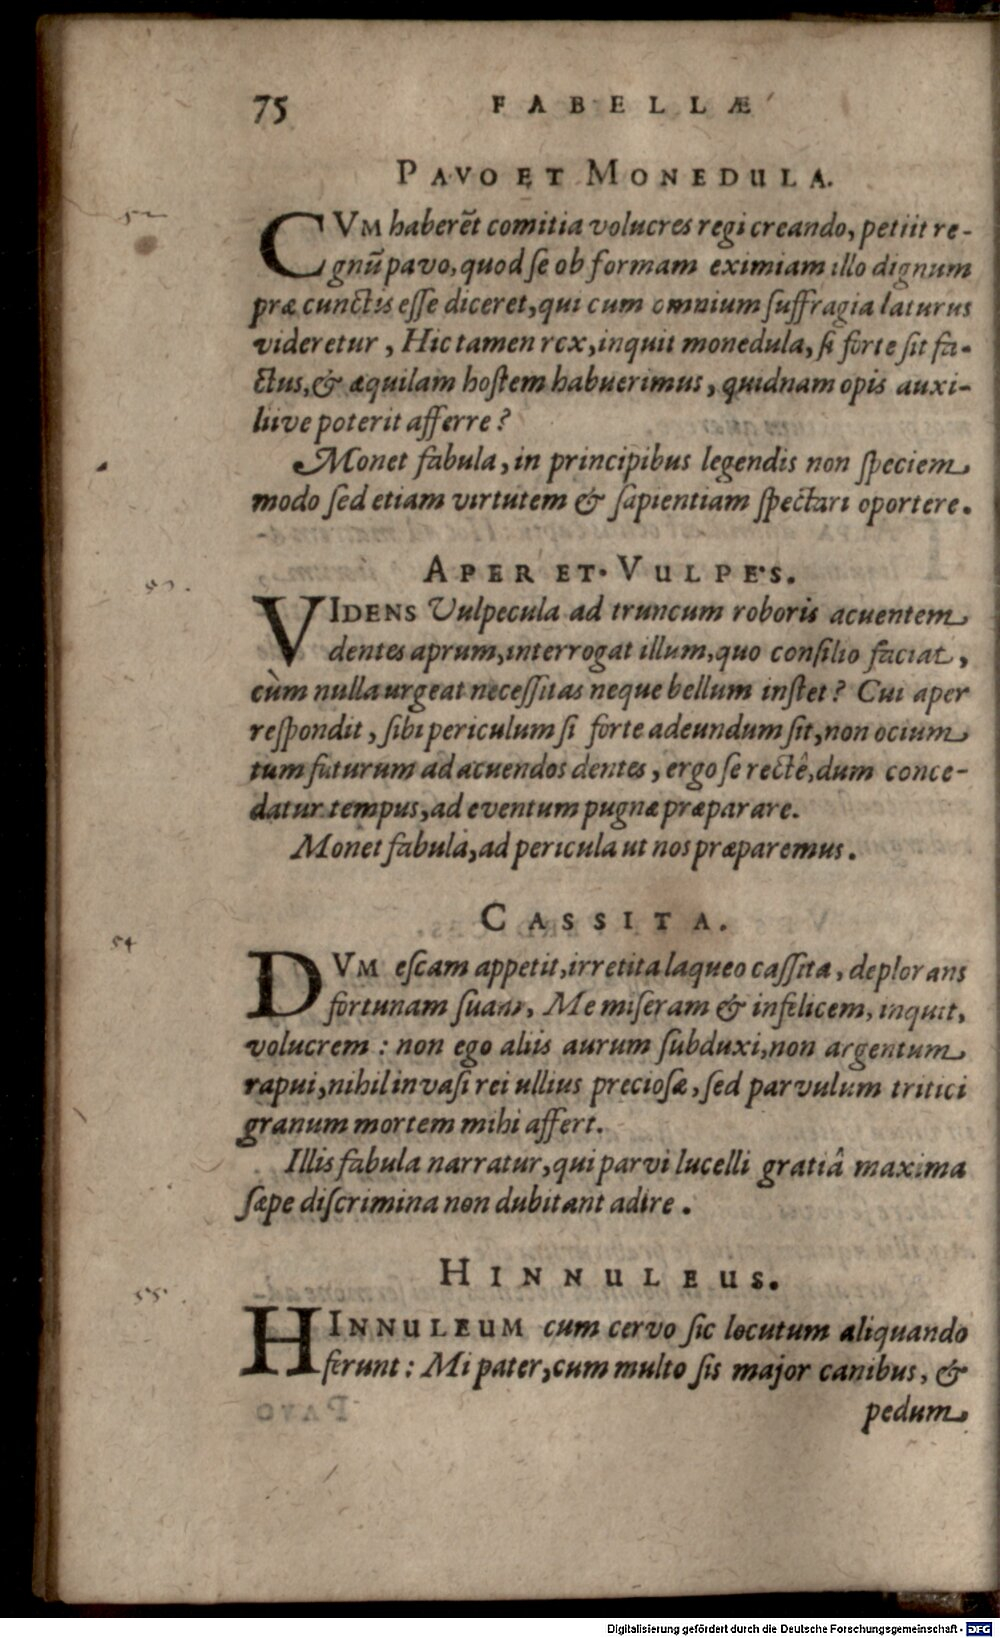 75 FABELLÆ
PAVO ET MONEDULA.
52
CVM haberẽt comitia volucres regi creando, petiit re-
gnũ pavo, quod se ob formam eximiam illo dignum
præ cunctis esse diceret, qui cum omnium suffragia laturus
videretur, Hic tamen rex, inquit monedula, si forte sit fa-
ctus, & aquilam hostem habuerimus, quidnam opis auxi-
liive poterit afferre?
Monet fabula, in principibus legendis non speciem
modo sed etiam virtutem & sapientiam spectari oportere.
53.
APER ET VULPES.
VIDENS Vulpecula ad truncum roboris acuentem
dentes aprum, interrogat illum, quo consilio faciat,
cùm nulla urgeat necessitas neque bellum instet? Cui aper
respondit, sibi periculum si forte adeundum sit, non ocium
tum futurum ad acuendos dentes, ergo se rectè, dum conce-
datur tempus, ad eventum pugnæ præparare.
Monet fabula, ad pericula ut nos præparemus.
CASSITA.
54
DVM escam appetit, irretita laqueo cassita, deplorans
fortunam suam, Me miseram & infelicem, inquit,
volucrem: non ego aliis aurum subduxi, non argentum
rapui, nihil invasi rei ullius preciosæ, sed parvulum tritici
granum mortem mihi affert.
Illis fabula narratur, qui parvi lucelli gratiâ maxima
sæpe discrimina non dubitant adire.
HINNULEUS.
55.
HINNULEUM cum cervo sic locutum aliquando
ferunt: Mi pater, cum multo sis major canibus, &
pedum
Digitalisierung gefördert durch die Deutsche Forschungsgemeinschaft - DFG